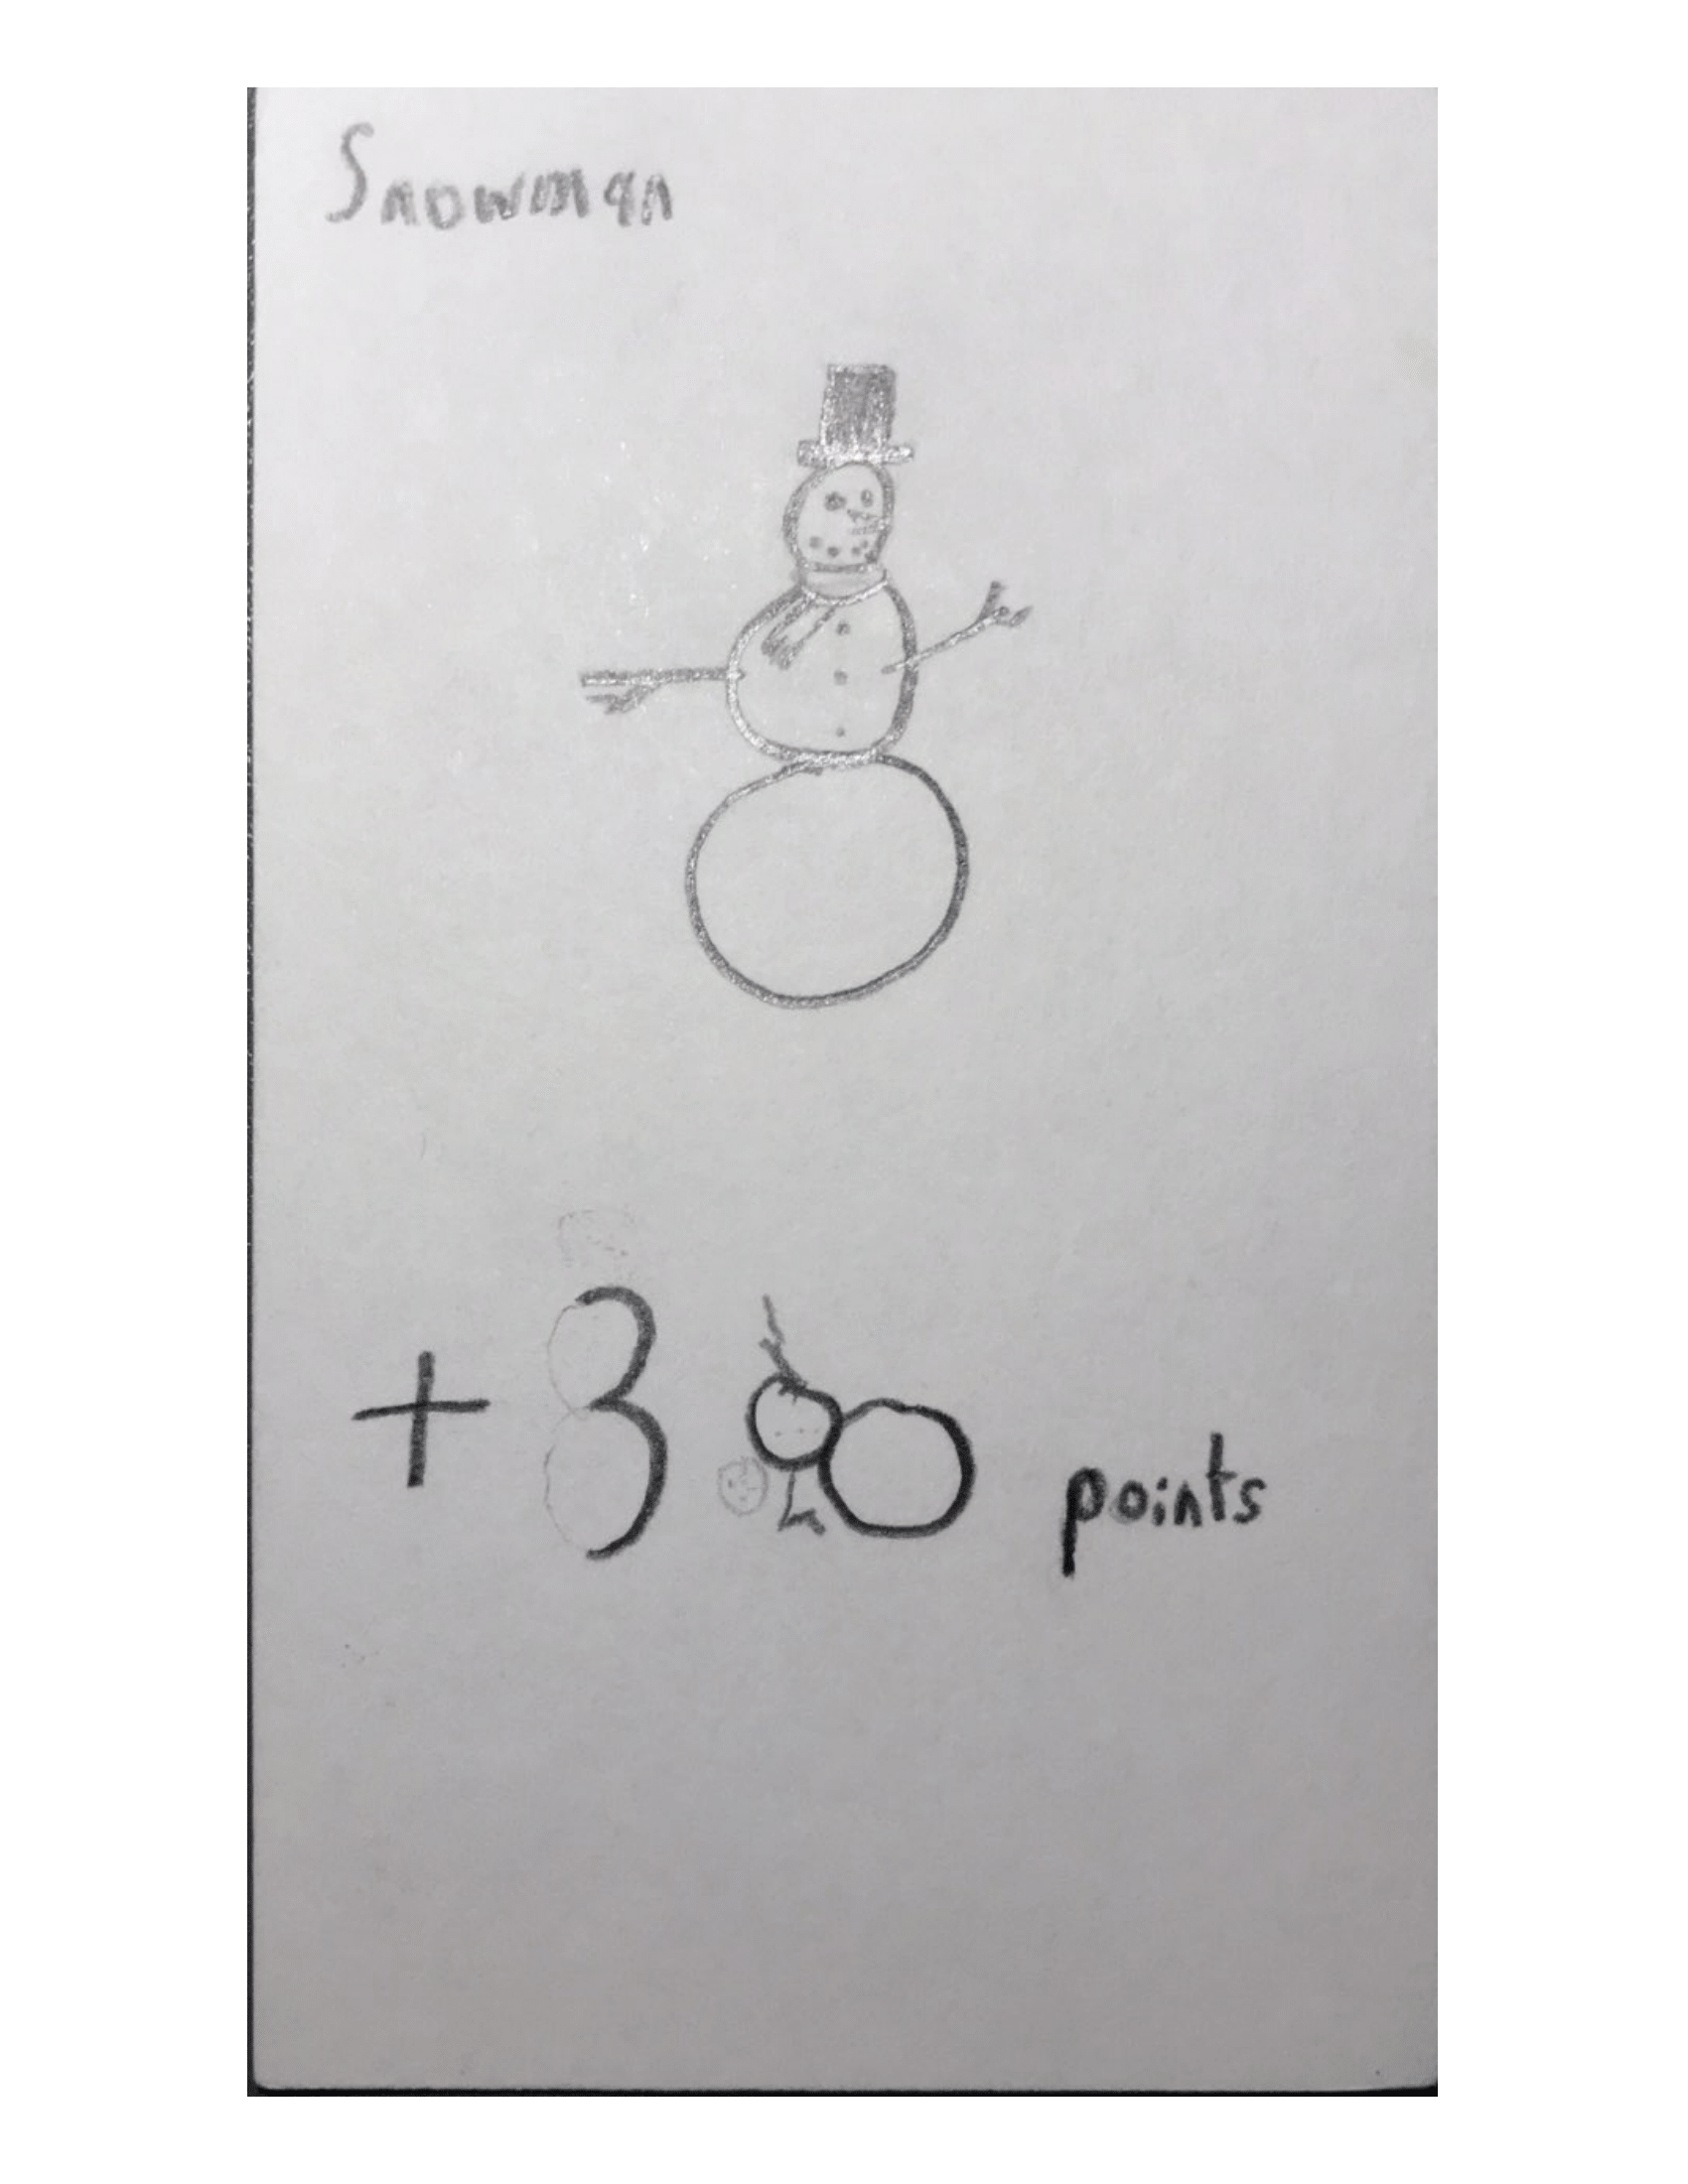 Snowman
+300 points